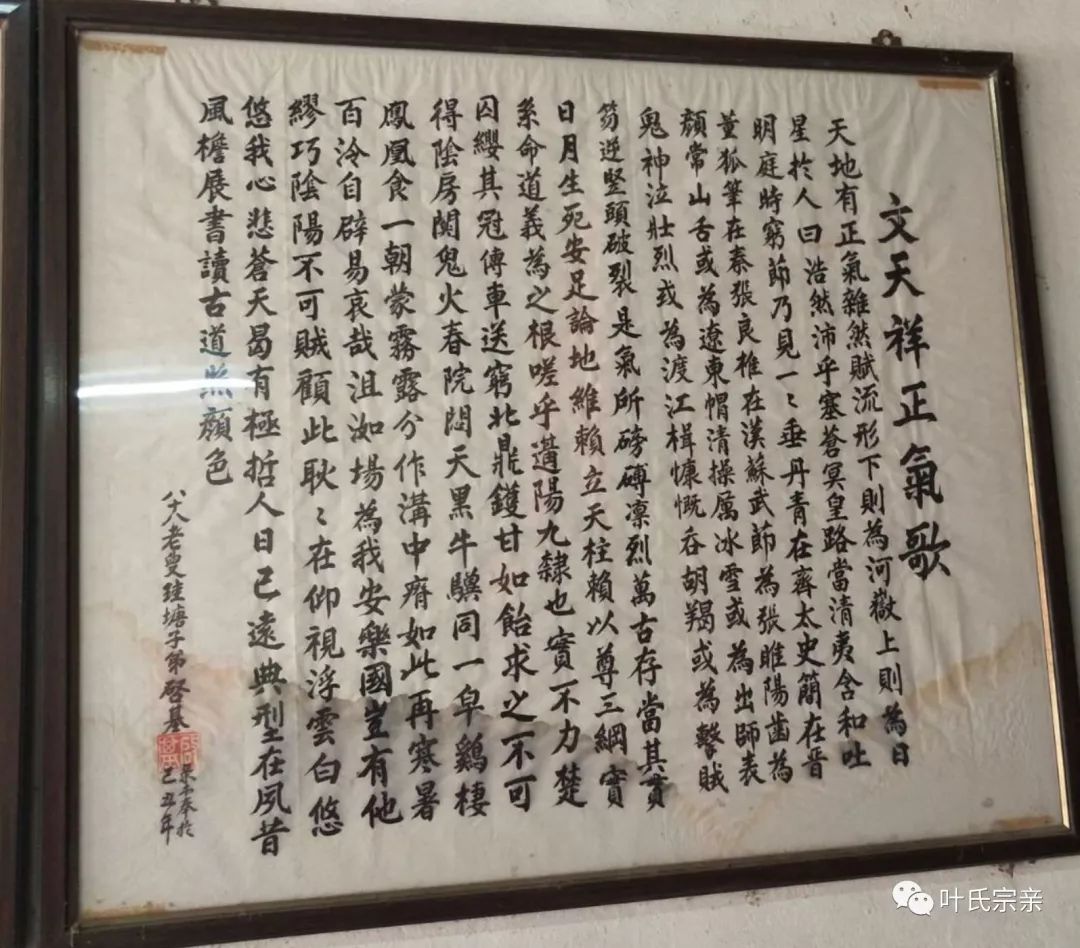 文天祥正氣歌
天地有正氣雜然賦流形下則為河嶽上則為日
星於人曰浩然沛乎塞蒼冥皇路當清夷含和吐
明庭時窮節乃見一〻垂丹青在齊太史簡在晉
董狐筆在秦張良椎在漢蘇武節為張睢陽齒為
顏常山舌或為遼東帽清操厲冰雪或為出師表
鬼神泣壯烈或為渡江楫慷慨吞胡羯或為擊賊
笏逆豎頭破裂是氣所磅礴凛烈萬古存當其貫
日月生死安足論地維賴立天柱賴以尊三綱實
系命道義為之根嗟乎遘陽九隸也實不力楚
囚纓其冠傳車送窮北鼎鑊甘如飴求之不可
得陰房闃鬼火春院閟天黑牛驥同一皁鷄棲
鳳凰食一朝蒙霧露分作溝中瘠如此再寒暑
百泠自辟易哀哉沮洳場為我安樂國豈有他
繆巧陰陽不可賊顧此耿〻在仰視浮雲白悠
悠我心悲蒼天曷有極哲人日已遠典型在夙昔
風檐展書讀古道照顏色
八十八老叟珪塘子弟啓基
奉於
己丑年
叶氏宗亲